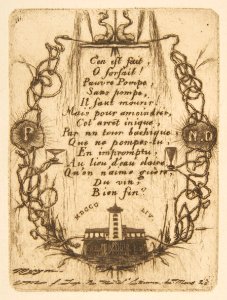 C'en est fait,
O forfait!
Pauvre Pompe,
Sans pompe,
Il faut mourir
Mais pour amoindrir,
Cet arrêt inique,
Par un tour bachique
Que ne pompes-tu,
En impromptu,
Au lieu d'eau claire
Qu'on n'aime guère,
Du vin?
Bien fin?
P
N.D
MDCCC LIV